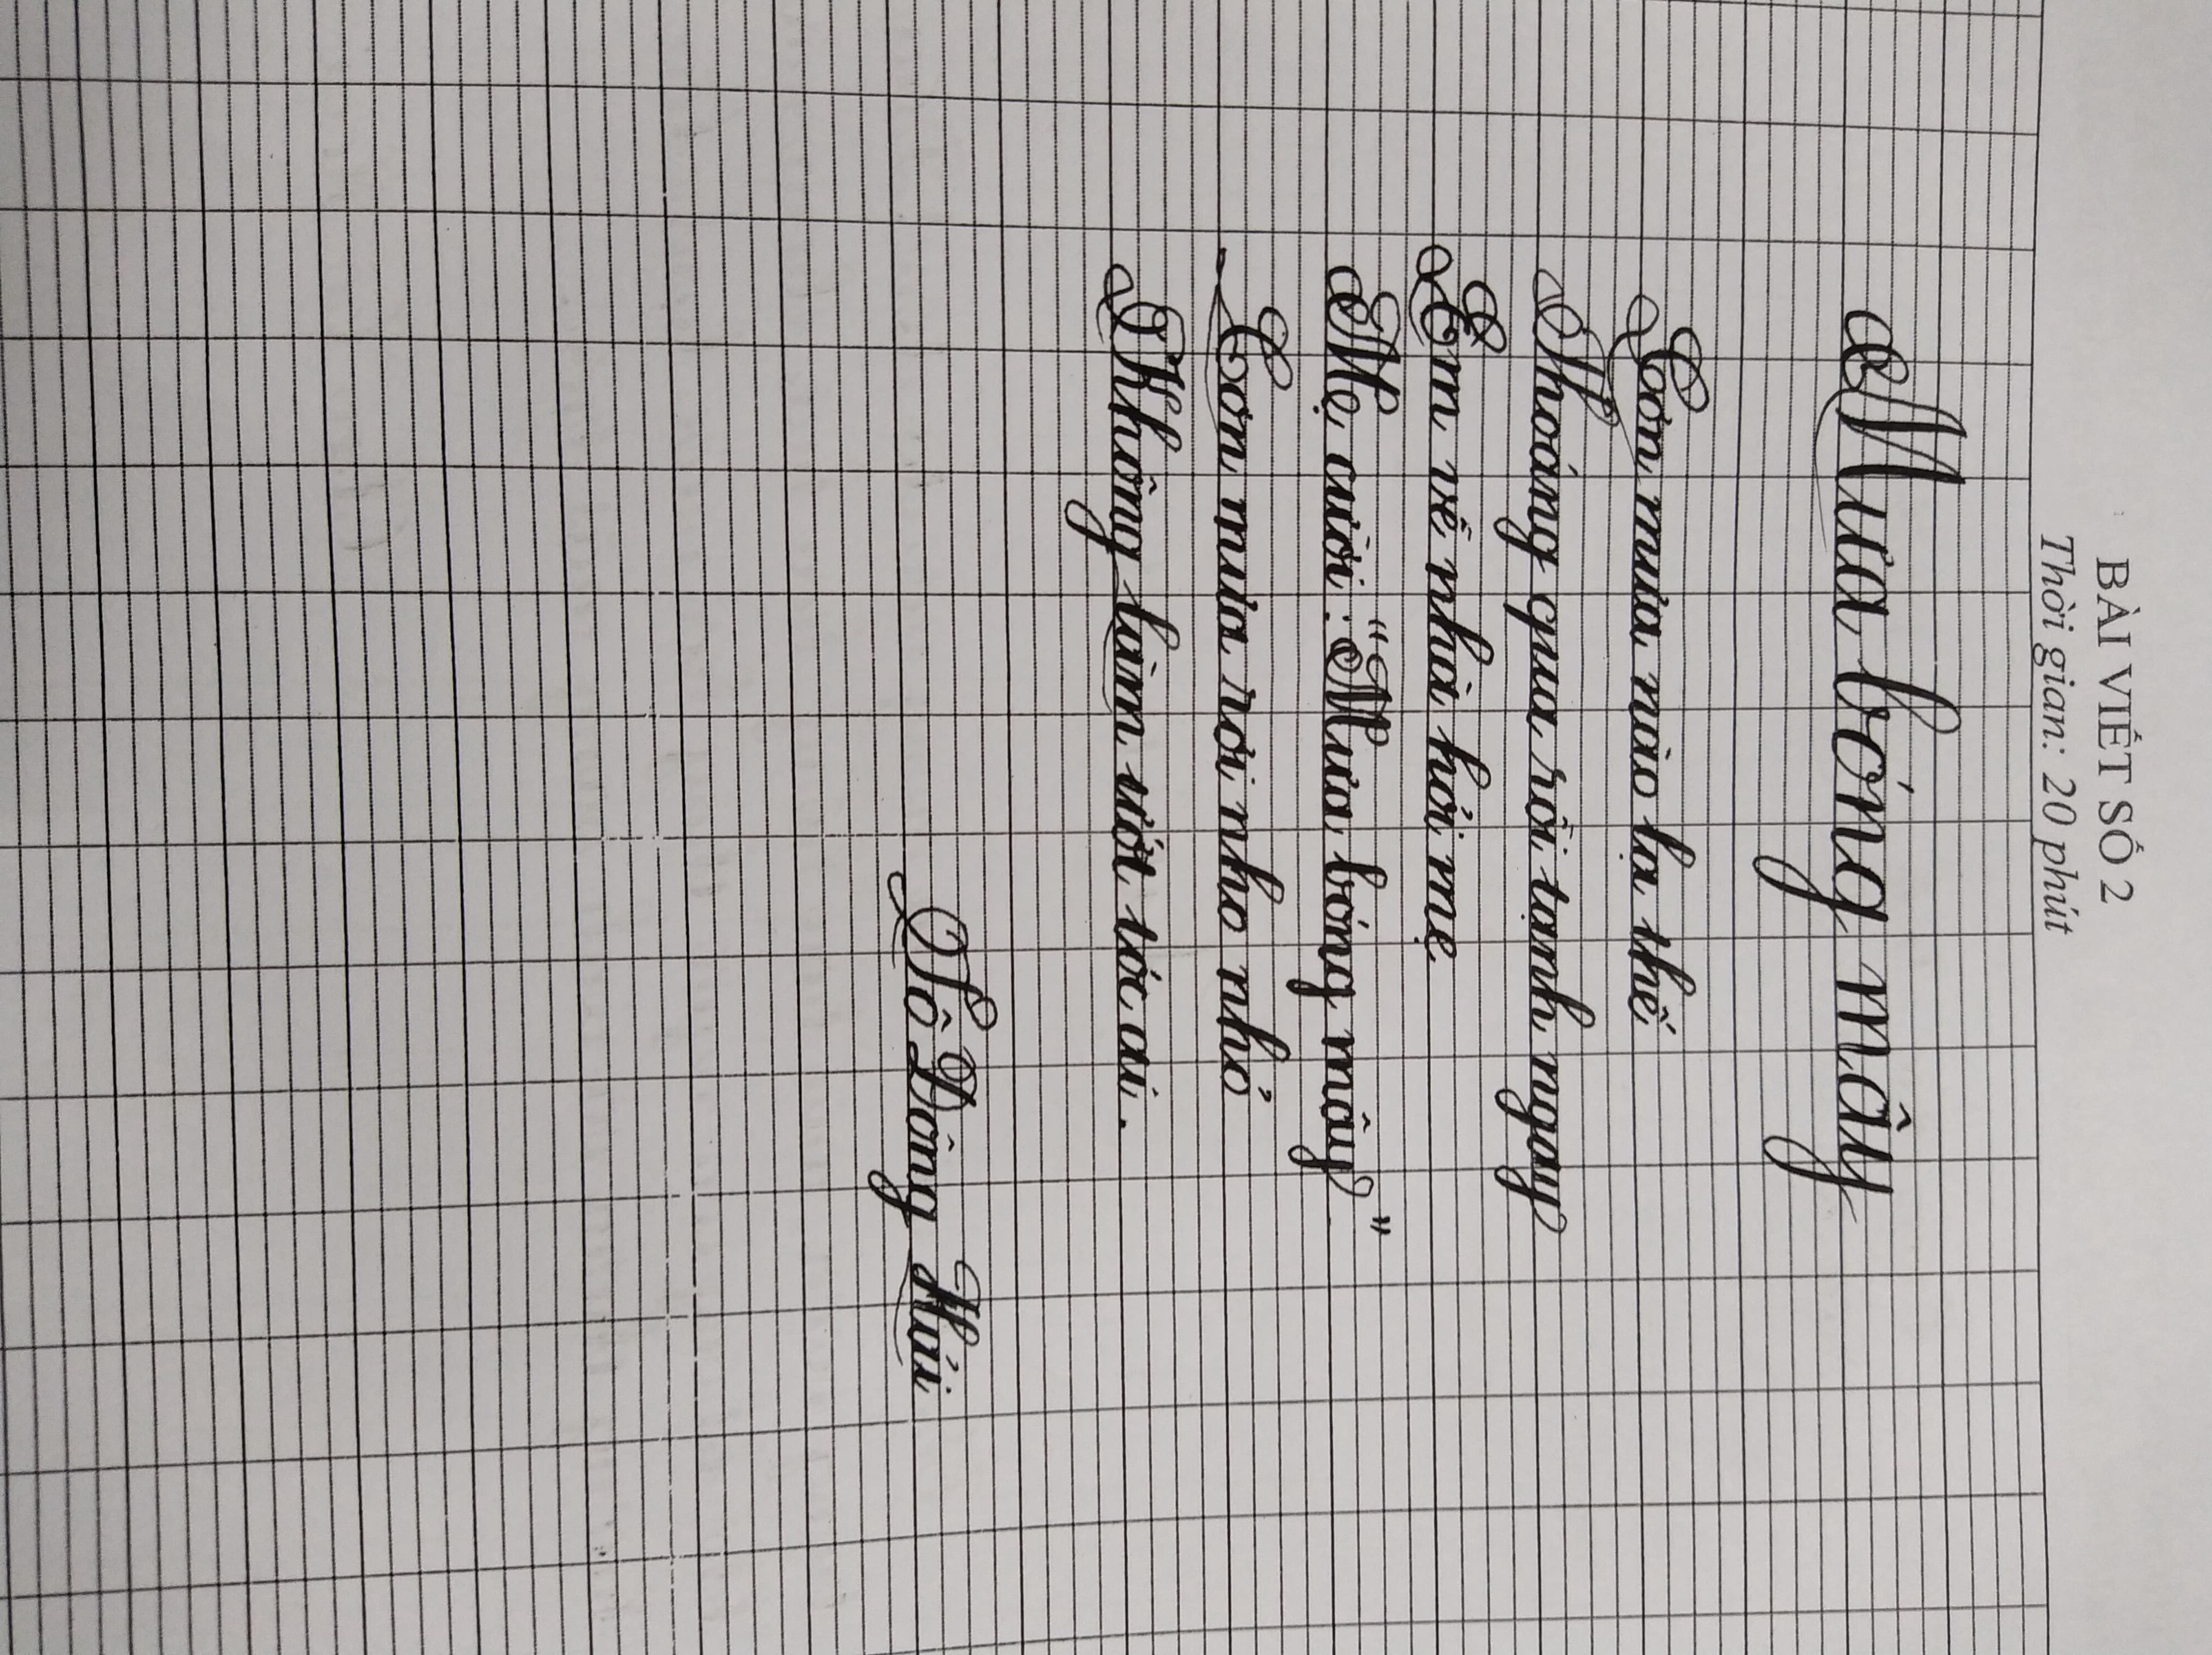 BÀI VIẾT SỐ 2
Thời gian: 20 phút
Mưa bóng mây
Cơn mưa nào lạ thế
Thoáng qua rồi tạnh ngay
Em về nhà hỏi mẹ
Mẹ cười: "Mưa bóng mây"
Cơn mưa rơi nho nhỏ
Không làm ướt tóc ai.
Tô Đông Hải